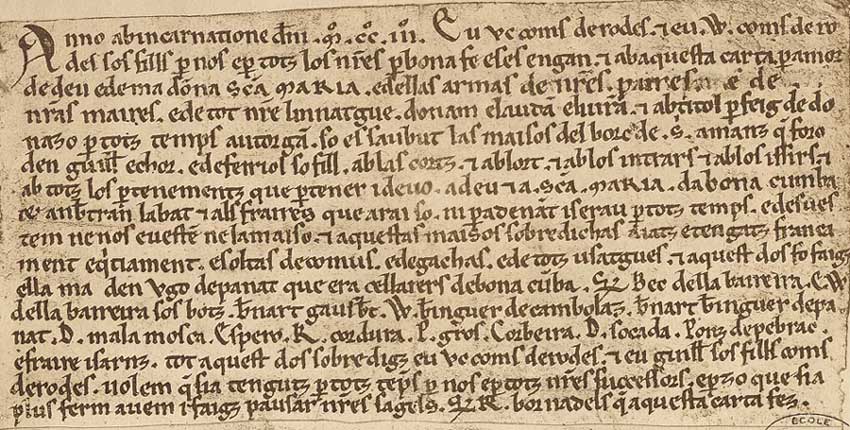 Anno ab incarnatione dñi .ṁ. cc̊. iii. Eu uc coms de rodes. ⁊ eu .W. coms de ro
des sos fills ꝑ nos eꝑ totz los nr̃es ꝑ bona fe e ses engan. ⁊ ab aquesta carta ꝑ amor
de deu e de ma dõna Sc̃a MARIA. e de llas armas de nr̃es. parres e de
nr̃as maires. e de tot nr̃e linnatgue. donam e laudã e liurã. ⁊ ab titol ꝑfeig de do
nazo ꝑ totz temps autorgã. so es saubut las maisos del borc de .S. amanz q̃ foro
den guill̃ echor. e de ferriol so fill. ab las cortz. ⁊ ab lort. ⁊ ab los intrars ⁊ ab los issirs. ⁊
ab totz los ꝑtenementz que ꝑtener i devo. a deu ⁊ a. Sc̃a. MARIA. da bona cumba
⁊ an btran labat ⁊ als fraires que arai so. ni ꝑ adenãt i serau ꝑ totz temps. e desues
tem ne nos e uestẽ ne la maiso. ⁊ aquestas maisos sobredichas aiatz e tengatz franca
ment eq̃tiament. e soltas de comus. e de gachas. e de totz usatgues. ⁊ aquest dos fo faigz
e lla ma den Vgo de panat que era cellarers de bona cũba. S̃ Bec de lla barreira. E W
de lla barreira sos botz. b̃nart gausb̃t. W. b̃inguer de cambolaz. b̃nart b̃inguer de pa
nat. D. mala mosca. Espero. R. cordura. P. gros. Corbeira. D. socada. Ponz de pebrac.
e fraire isarnz. tot aquest dos sobredigz eu uc coms de rodes. ⁊ eu guill̃ sos fills coms
de rodes. uolem q̃ sia tengutz ꝑ totz tẽps ꝑ nos eꝑ totz nr̃es successors. eꝑ zo que sia
plus ferm auem i faigz pausar nr̃es sagels. S̃ R. bornadels q̃ aquesta carta fez.
ECOLE